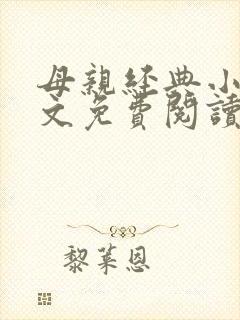 母親経典小
文免費閱讀
黎萊恩